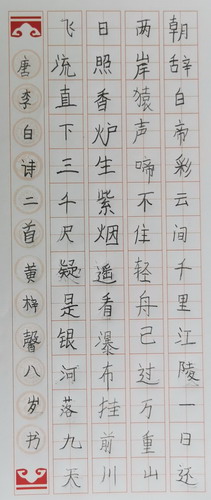 朝辞白帝彩云间千里江陵一日还
两岸猿声啼不住轻舟已过万重山
日照香炉生紫烟遥看瀑布挂前川
飞流直下三千尺疑是银河落九天
唐李白诗二首黄梓馨八岁书